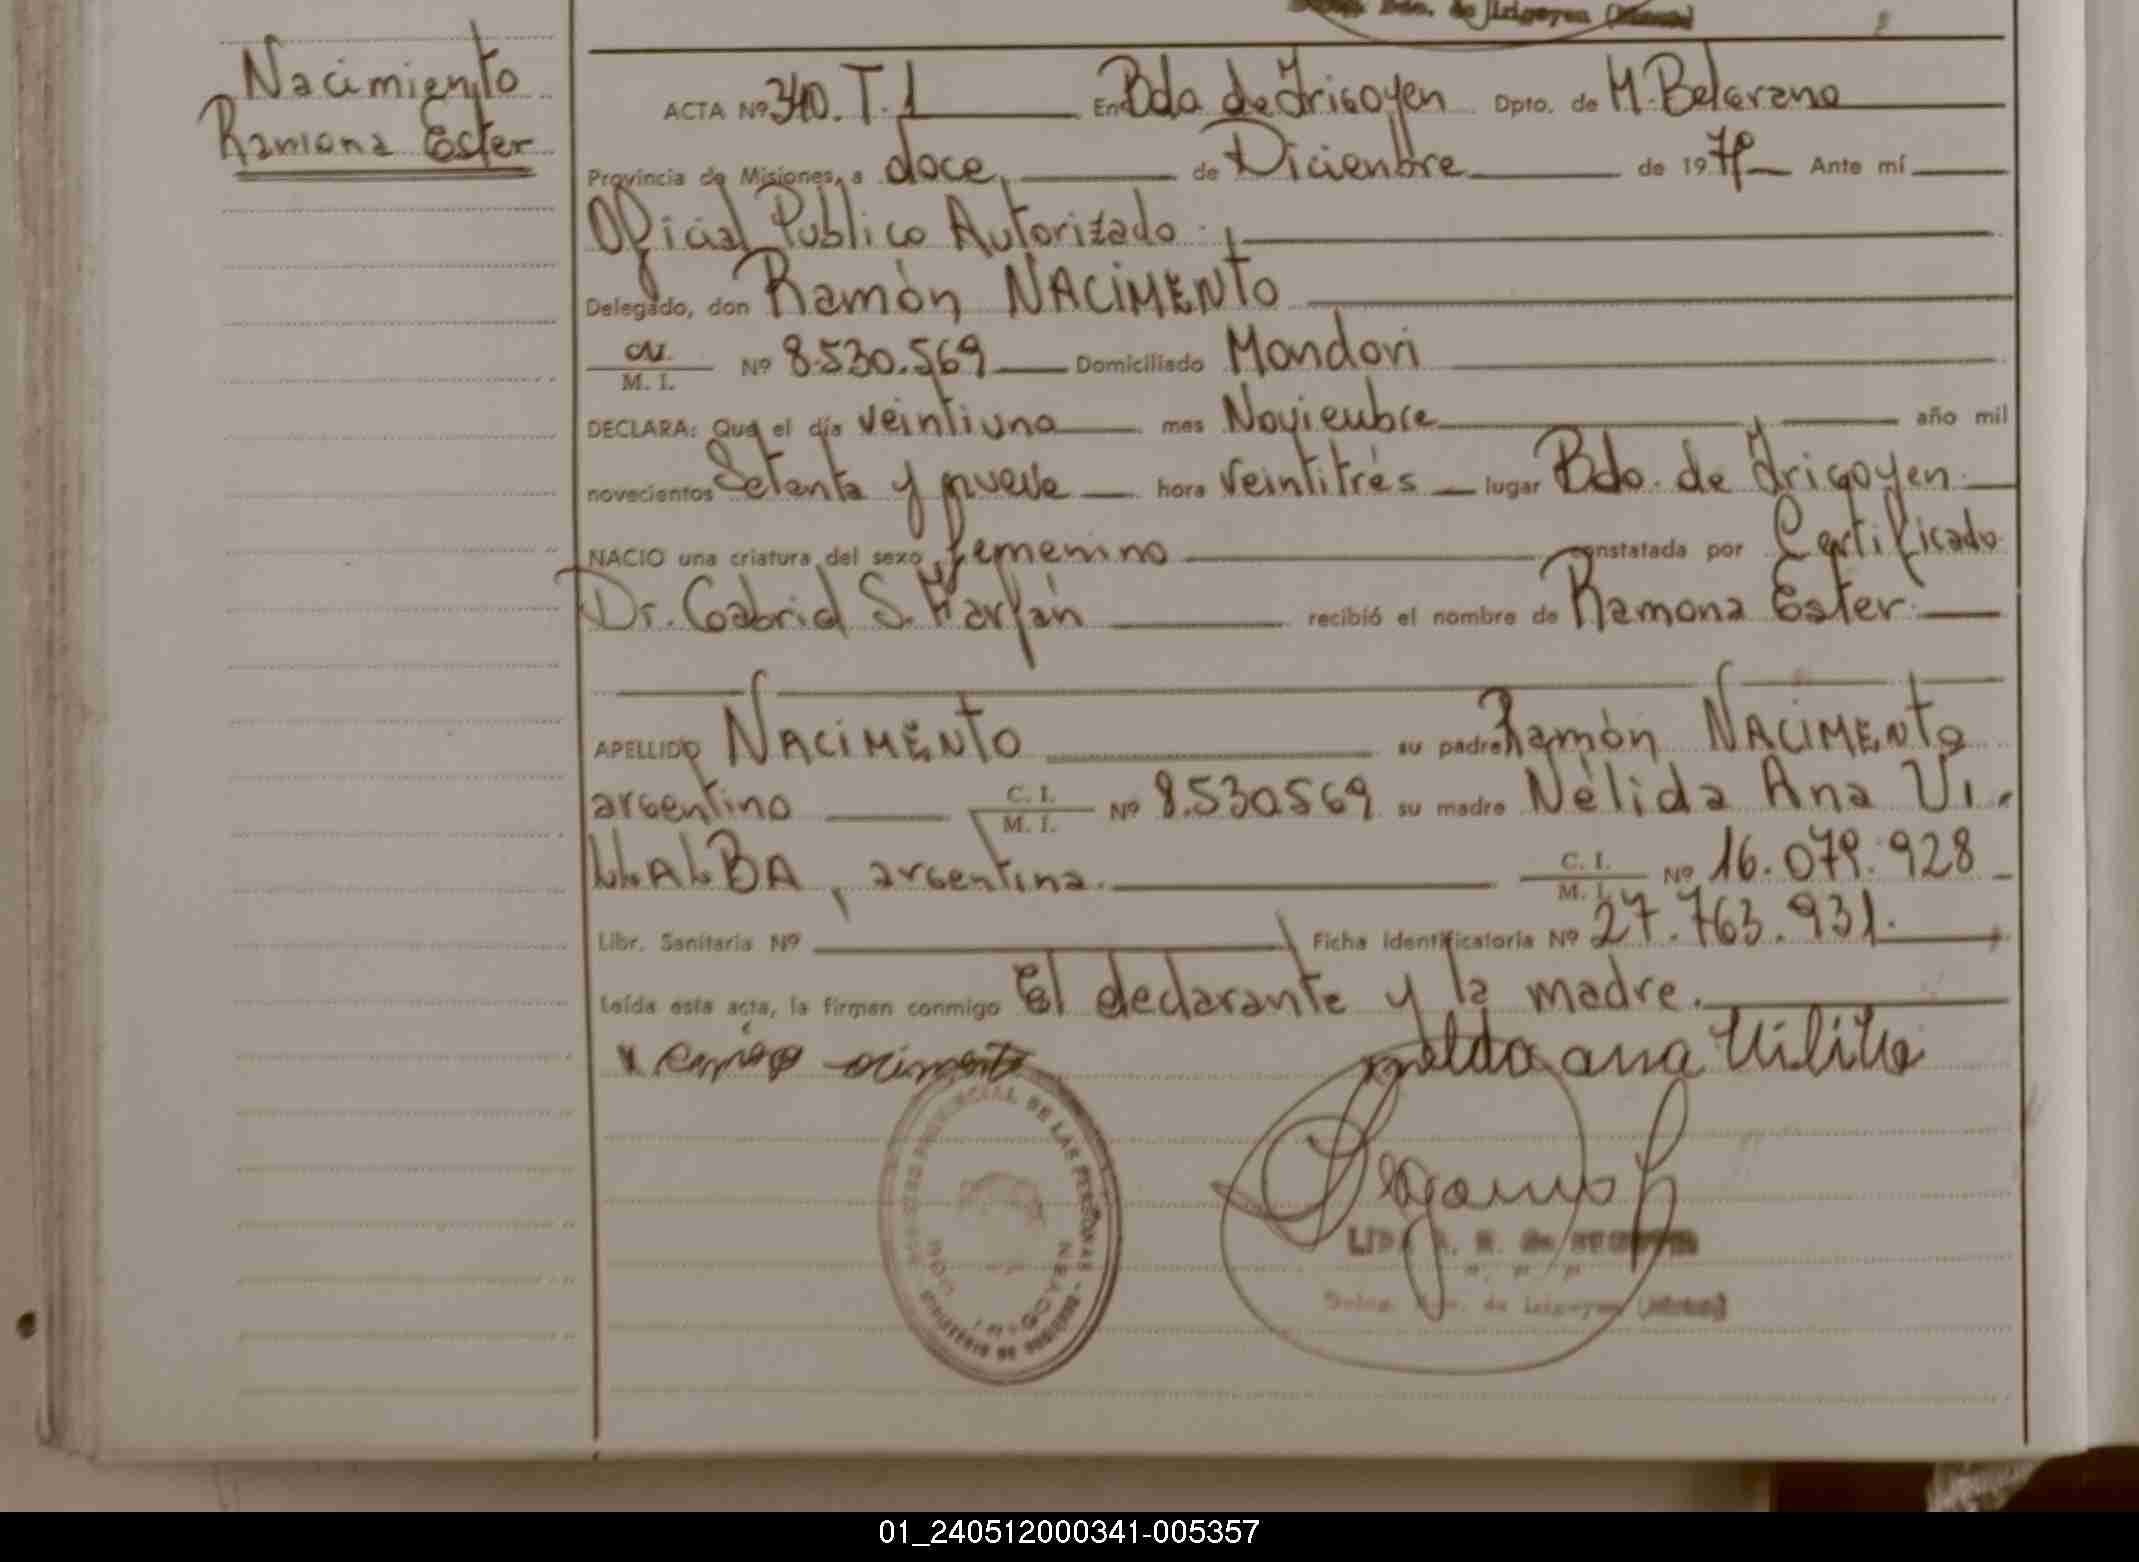 Delg. Bdo. de Irigoyen (Mnes)
Nacimiento
Ramona Ester
ACTA Nº 340. T. 1 En Bdo de Irigoyen Dpto. de M. Belgrano
Provincia de Misiones, a doce, de Diciembre de 1979 Ante mí
Oficial Publico Autorizado.
Delegado, don Ramón NACIMENTO
M. I. Nº 8.530.569 Domiciliado Mondori
DECLARA: Que el día veintiuno mes Noviembre año mil
novecientos Setenta y nueve hora veintitrés lugar Bdo. de Irigoyen.
NACIO una criatura del sexo femenino constatada por Certificado
Dr. Gabriel S. Farfán recibió el nombre de Ramona Ester.
APELLIDO NACIMENTO su padre Ramón NACIMENTO
argentino C. I. M. I. Nº 8.530569 su madre Nélida Ana VI-
LLALBA, argentina. C. I. M. I. Nº 16.079.928
Libr. Sanitaria Nº Ficha Identificatoria Nº 27.763.931.
Leída esta acta, la firman conmigo el declarante y la madre.
DE LAS PERSONAS
MINISTERIO DE GOBIERNO
BDO. IRIGOYEN
de Irigoyen
01_240512000341-005357